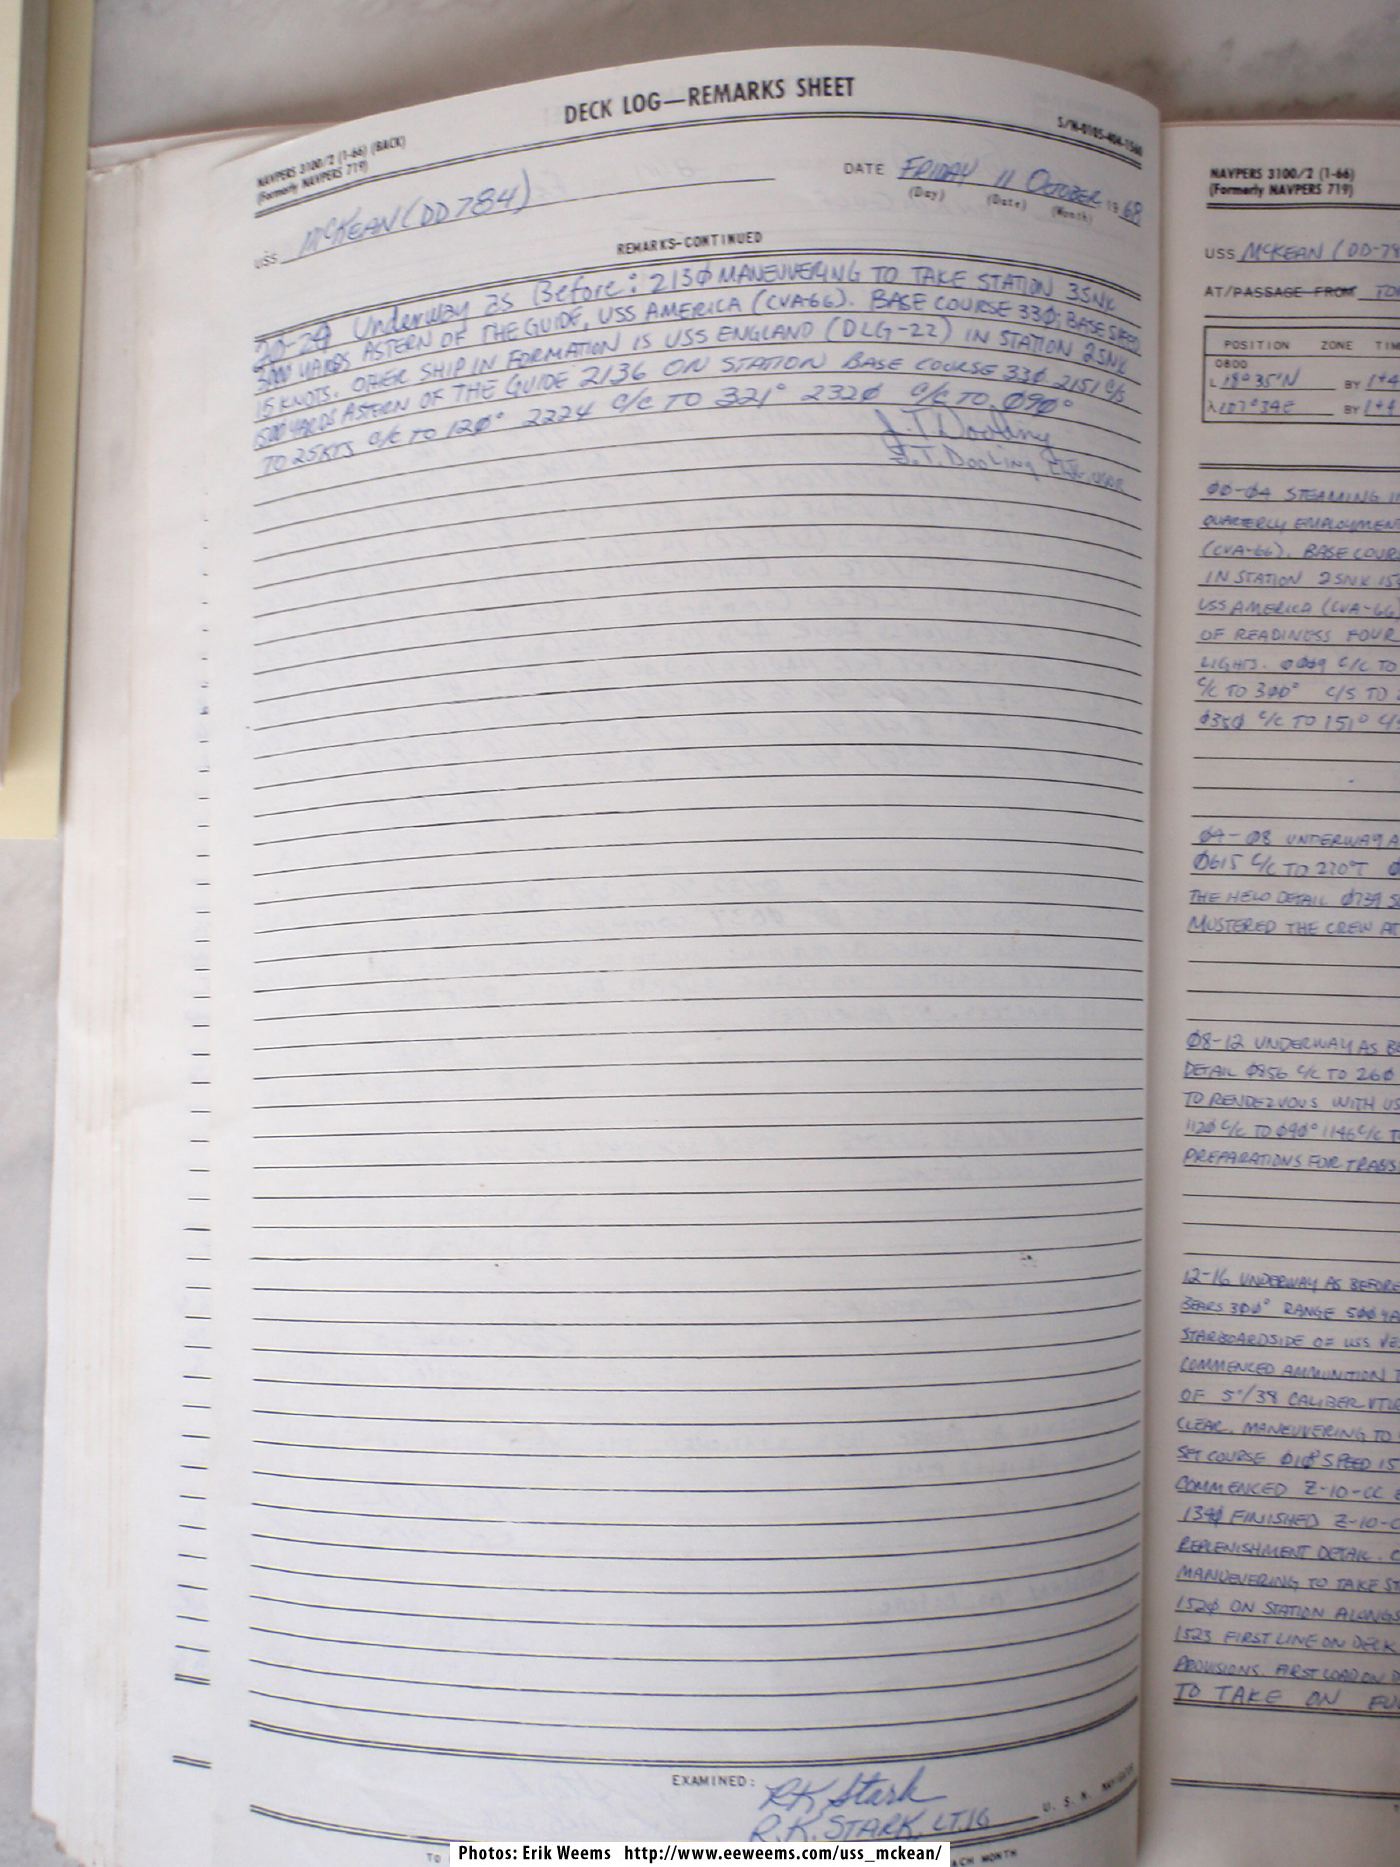 DECK LOG—REMARKS SHEET
NAVPERS 3100/2 (1-66) (BACK)
(Formerly NAVPERS 719)
S/N-0105-404-1560
USS McKEAN (DD784)
DATE FRIDAY 11 OCTOBER 1968
(Day) (Date) (Month)
REMARKS-CONTINUED
20-24 Underway as Before: 2130 MANEUVERING TO TAKE STATION 3SNK
3000 YARDS ASTERN OF THE GUIDE, USS AMERICA (CVA-66). BASE COURSE 330; BASE SPEED
15 KNOTS. OTHER SHIP IN FORMATION IS USS ENGLAND (DLG-22) IN STATION 2SNK
1500 YARDS ASTERN OF THE GUIDE 2136 ON STATION BASE COURSE 330 2151 C/S
TO 25KTS C/C TO 120° 2224 C/C TO 321° 2320 C/C TO 090°
J.T. Dooling
J.T. Dooling
EXAMINED:
R.K. Stark
R.K. STARK, LTJG
U. S. N. NAVIGATOR
TO
ACH MONTH
NAVPERS 3100/2 (1-66)
(Formerly NAVPERS 719)
USS McKEAN (DD-78
AT/PASSAGE FROM
POSITION ZONE TIM
0800
L 18°35'N BY
λ 107°34E BY
00-04 STEAMING I
QUARTERLY EMPLOYMEN
(CVA-66). BASE COUR
IN STATION 2SNK 15
USS AMERICA (CVA-66
OF READINESS FOUR
LIGHTS. 0009 C/C TO
C/C TO 300° C/S TO
0350 C/C TO 151° C/
04-08 UNDERWAY A
0615 C/C TO 220°T 0
THE HELO DETAIL 0739 S
MUSTERED THE CREW AT
08-12 UNDERWAY AS BE
DETAIL 0856 C/C TO 260
TO RENDEZVOUS WITH US
1120 C/C TO 090° 1146 C/C T
PREPARATIONS FOR TRANS
12-16 UNDERWAY AS BEFORE
BEARS 300° RANGE 500 YA
STARBOARDSIDE OF USS VE
COMMENCED AMMUNITION T
OF 5"/38 CALIBER
CLEAR. MANEUVERING TO
SET COURSE 010° SPEED 15
COMMENCED Z-10-CC
1340 FINISHED Z-10-C
REPLENISHMENT DETAIL. C
MANUEVERING TO TAKE ST
1520 ON STATION ALONGS
1523 FIRST LINE ON DECK
PROVISIONS. FIRST LOAD ON D
TO TAKE ON FU
Photos: Erik Weems http://www.eeweems.com/uss_mckean/